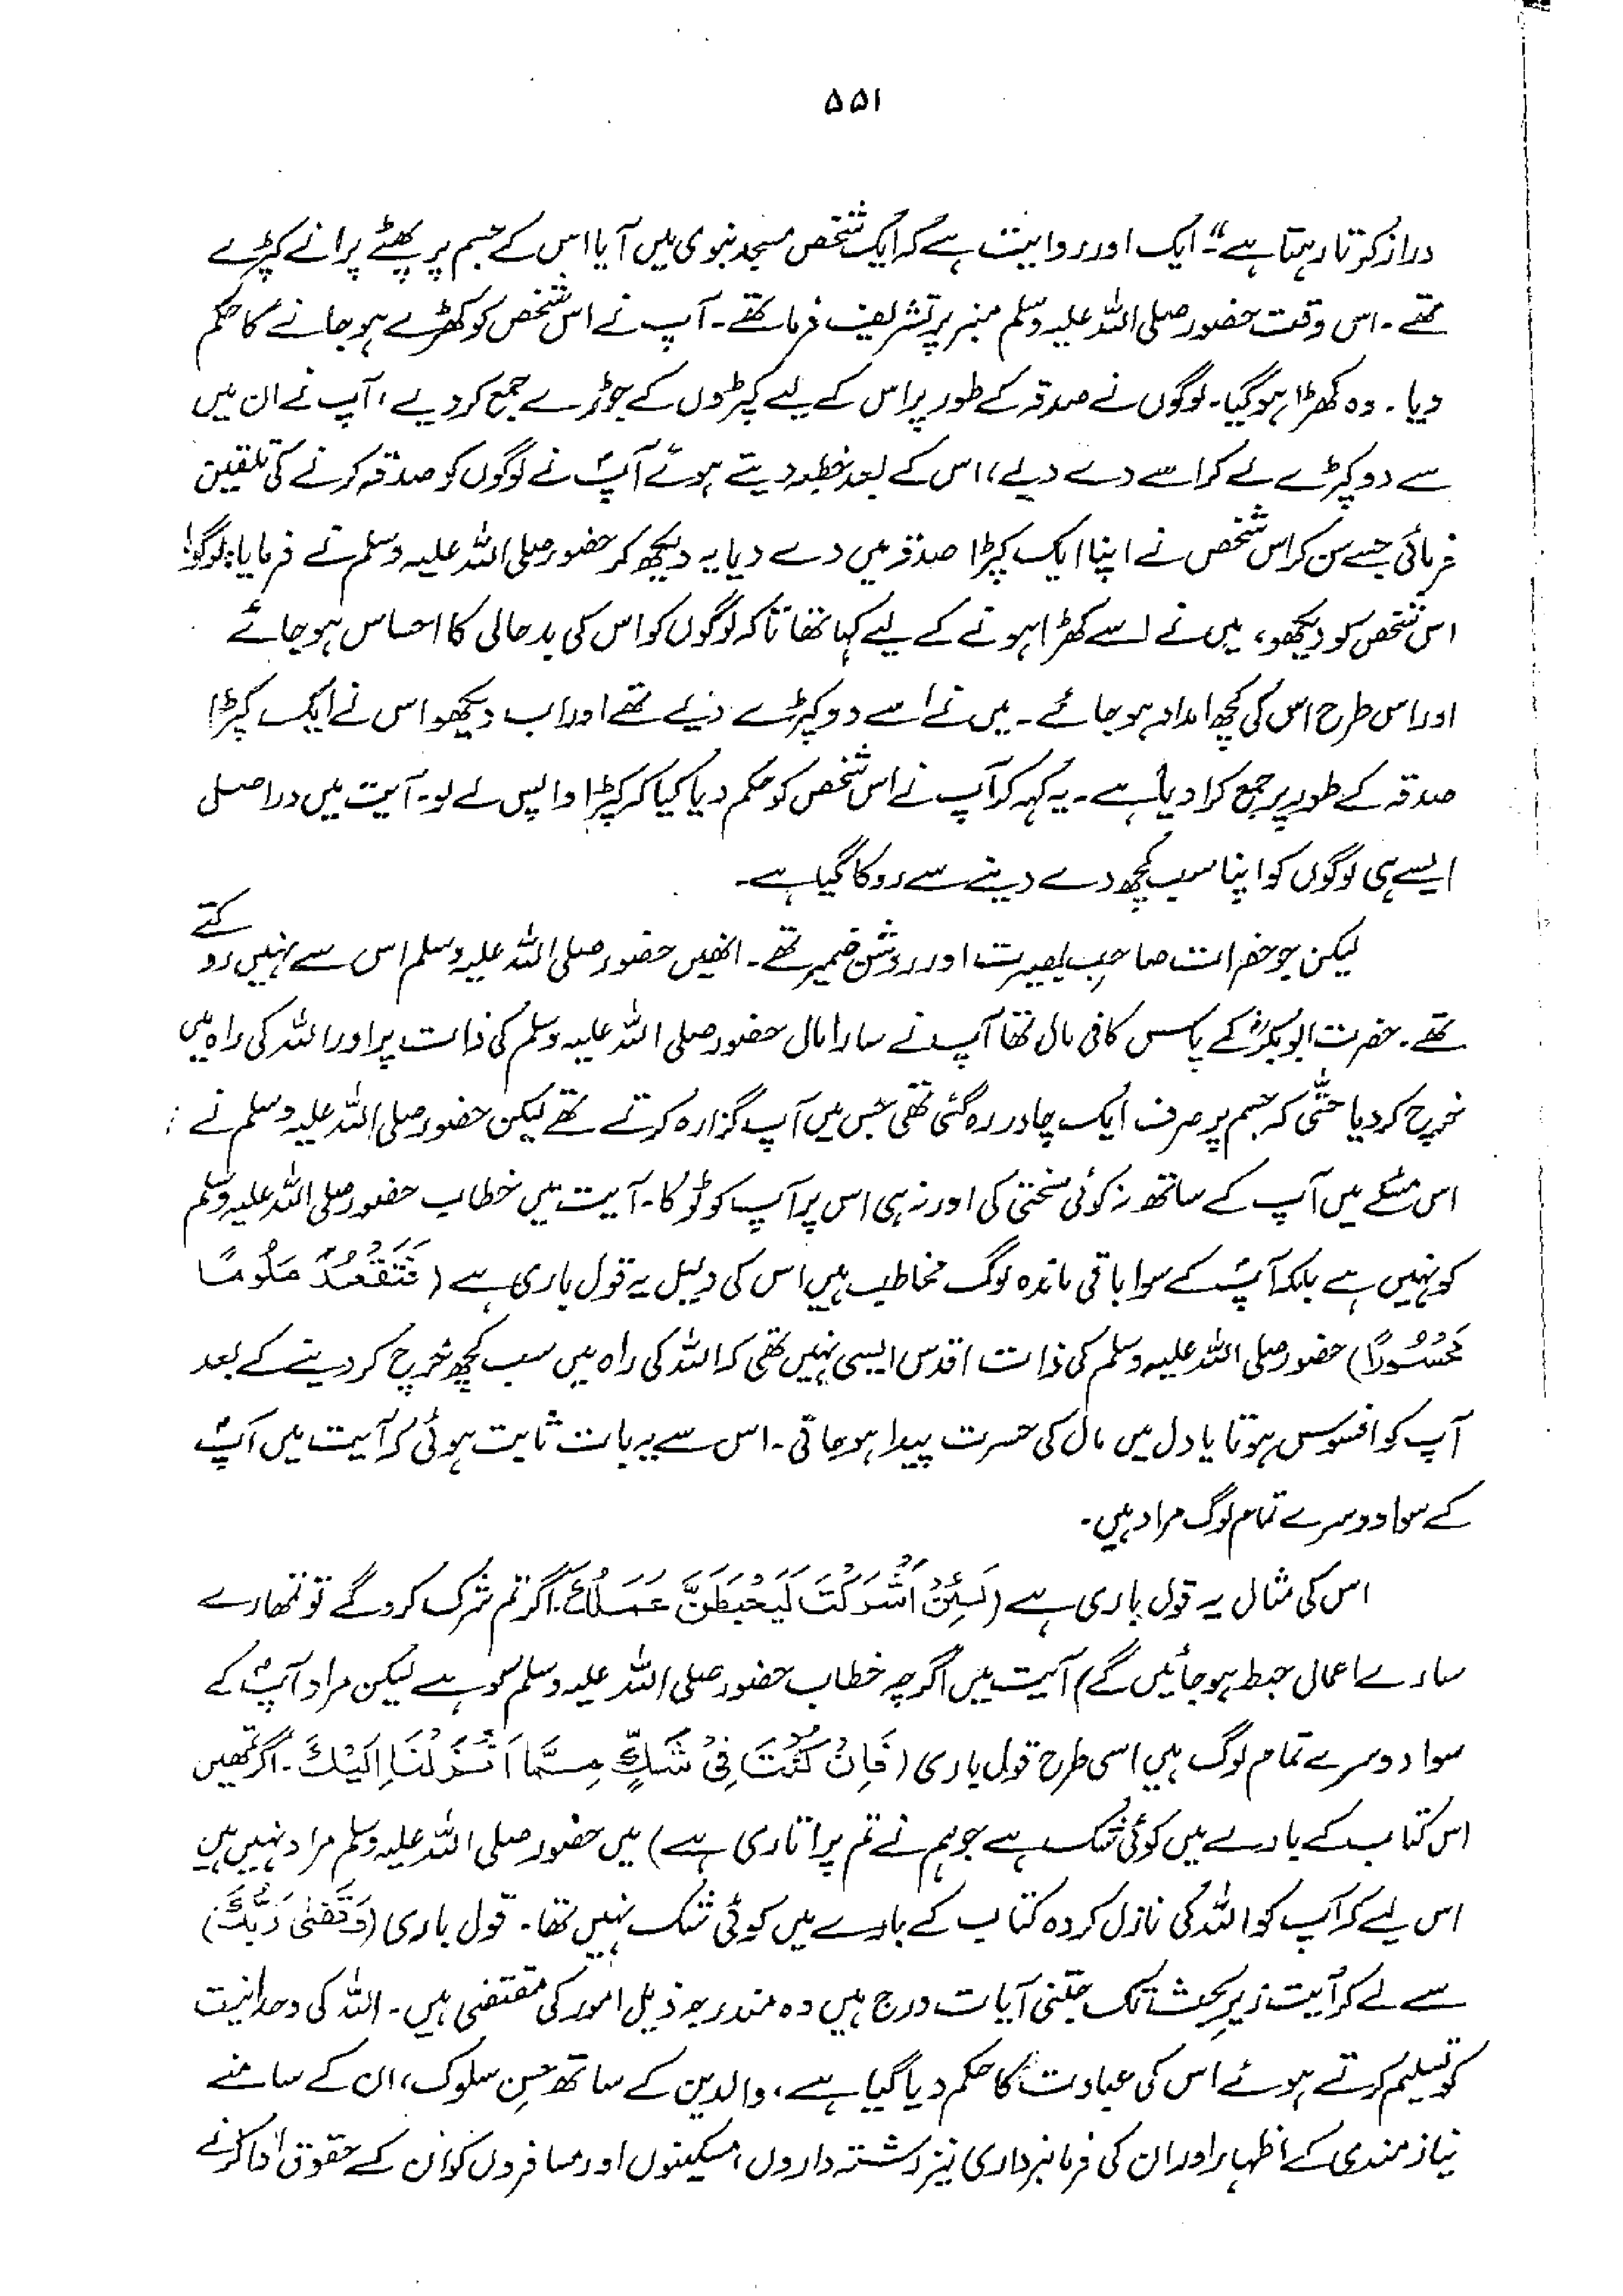 ۵۵۱
دراز کرتا رہتا ہے“۔ ایک اور روایت ہے کہ ایک شخص مسجد نبوی میں آیا اس کے جسم پر پھٹے پرانے کپڑے
تھے۔ اس وقت حضور صلی اللہ علیہ وسلم منبر پر تشریف فرما تھے۔ آپ نے اس شخص کو کھڑے ہو جانے کا حکم
دیا۔ وہ کھڑا ہو گیا۔ لوگوں نے صدقہ کے طور پر اس کے لیے کپڑوں کے جوڑے جمع کر دیے، آپ نے ان میں
سے دو کپڑے لے کر اسے دے دیے، اس کے بعد خطبہ دیتے ہوئے آپؐ نے لوگوں کو صدقہ کرنے کی تلقین
فرمائی جسے سن کر اس شخص نے اپنا ایک کپڑا صدقہ میں دے دیا یہ دیکھ کر حضور صلی اللہ علیہ وسلم نے فرمایا: لوگو!
اس شخص کو دیکھو، میں نے اسے کھڑا ہونے کے لیے کہا تھا تاکہ لوگوں کو اس کی بدحالی کا احساس ہو جائے
اور اس طرح اس کی کچھ امداد ہو جائے۔ میں نے اسے دو کپڑے دیے تھے اور اب دیکھو اس نے ایک کپڑا
صدقہ کے طور پر جمع کرا دیا ہے۔ یہ کہہ کر آپ نے اس شخص کو حکم دیا کیا کہ کپڑا واپس لے لو۔ آیت میں دراصل
ایسے ہی لوگوں کو اپنا سب کچھ دے دینے سے روکا گیا ہے۔
لیکن جو حضرات صاحب بصیرت اور روشن ضمیر تھے۔ انھیں حضور صلی اللہ علیہ وسلم اس سے نہیں روکتے
تھے۔ حضرت ابوبکرؓ کے پاس کافی مال تھا آپ نے سارا مال حضور صلی اللہ علیہ وسلم کی ذات پر اور اللہ کی راہ میں
خرچ کر دیا حتّٰی کہ جسم پر صرف ایک چادر رہ گئی تھی جس میں آپ گزارہ کرتے تھے لیکن حضور صلی اللہ علیہ وسلم نے
اس مسئلے میں آپ کے ساتھ نہ کوئی سختی کی اور نہ ہی اس پر آپ کو ٹوکا۔ آیت میں خطاب حضور صلی اللہ علیہ وسلم
کو نہیں ہے بلکہ آپؐ کے سوا باقی ماندہ لوگ مخاطب ہیں اس کی دلیل یہ قول باری ہے (فَتَقْعُدَ مَلُوْمًا
مَحْسُوْرًا) حضور صلی اللہ علیہ وسلم کی ذات اقدس ایسی نہیں تھی کہ اللہ کی راہ میں سب کچھ خرچ کر دینے کے بعد
آپ کو افسوس ہوتا یا دل میں مال کی حسرت پیدا ہو جاتی۔ اس سے یہ بات ثابت ہوئی کہ آیت میں آپؐ
کے سوا دوسرے تمام لوگ مراد ہیں۔
اس کی مثال یہ قول باری ہے (لَئِنْ اَشْرَكْتَ لَيَحْبَطَنَّ عَمَلُكَ۔ اگر تم شرک کرو گے تو تمھارے
سارے اعمال حبط ہو جائیں گے) آیت میں اگرچہ خطاب حضور صلی اللہ علیہ وسلم کو ہے لیکن مراد آپؐ کے
سوا دوسرے تمام لوگ ہیں اسی طرح قول باری (فَاِنْ كُنْتَ فِیْ شَكٍّ مِمَّا اَنْزَلْنَا اِلَيْكَ۔ اگر تمھیں
اس کتاب کے بارے میں کوئی شک ہے جو ہم نے تم پر اتاری ہے) میں حضور صلی اللہ علیہ وسلم مراد نہیں ہیں
اس لیے کہ آپ کو اللہ کی نازل کردہ کتاب کے بارے میں کوئی شک نہیں تھا۔ قول باری (وَقَضٰى رَبُّكَ)
سے لے کر آیت زیرِ بحث تک جتنی آیات درج ہیں وہ مندرجہ ذیل امور کی مقتضی ہیں۔ اللہ کی وحدانیت
کو تسلیم کرتے ہوئے اس کی عبادت کا حکم دیا گیا ہے، والدین کے ساتھ حسنِ سلوک، ان کے سامنے
نیاز مندی کے اظہار اور ان کی فرمانبرداری نیز رشتہ داروں، مسکینوں اور مسافروں کو ان کے حقوق ادا کرنے